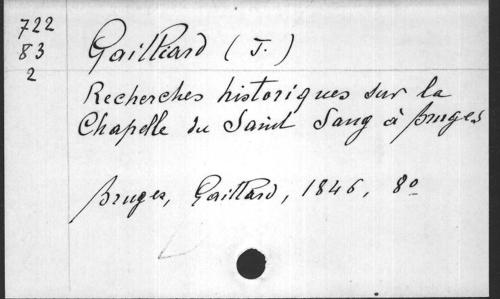 722
83
2
Gailliard (J.)
Recherches historiques sur la
Chapelle du Saint Sang à Bruges
Bruges, Gaillard, 1846, 8o